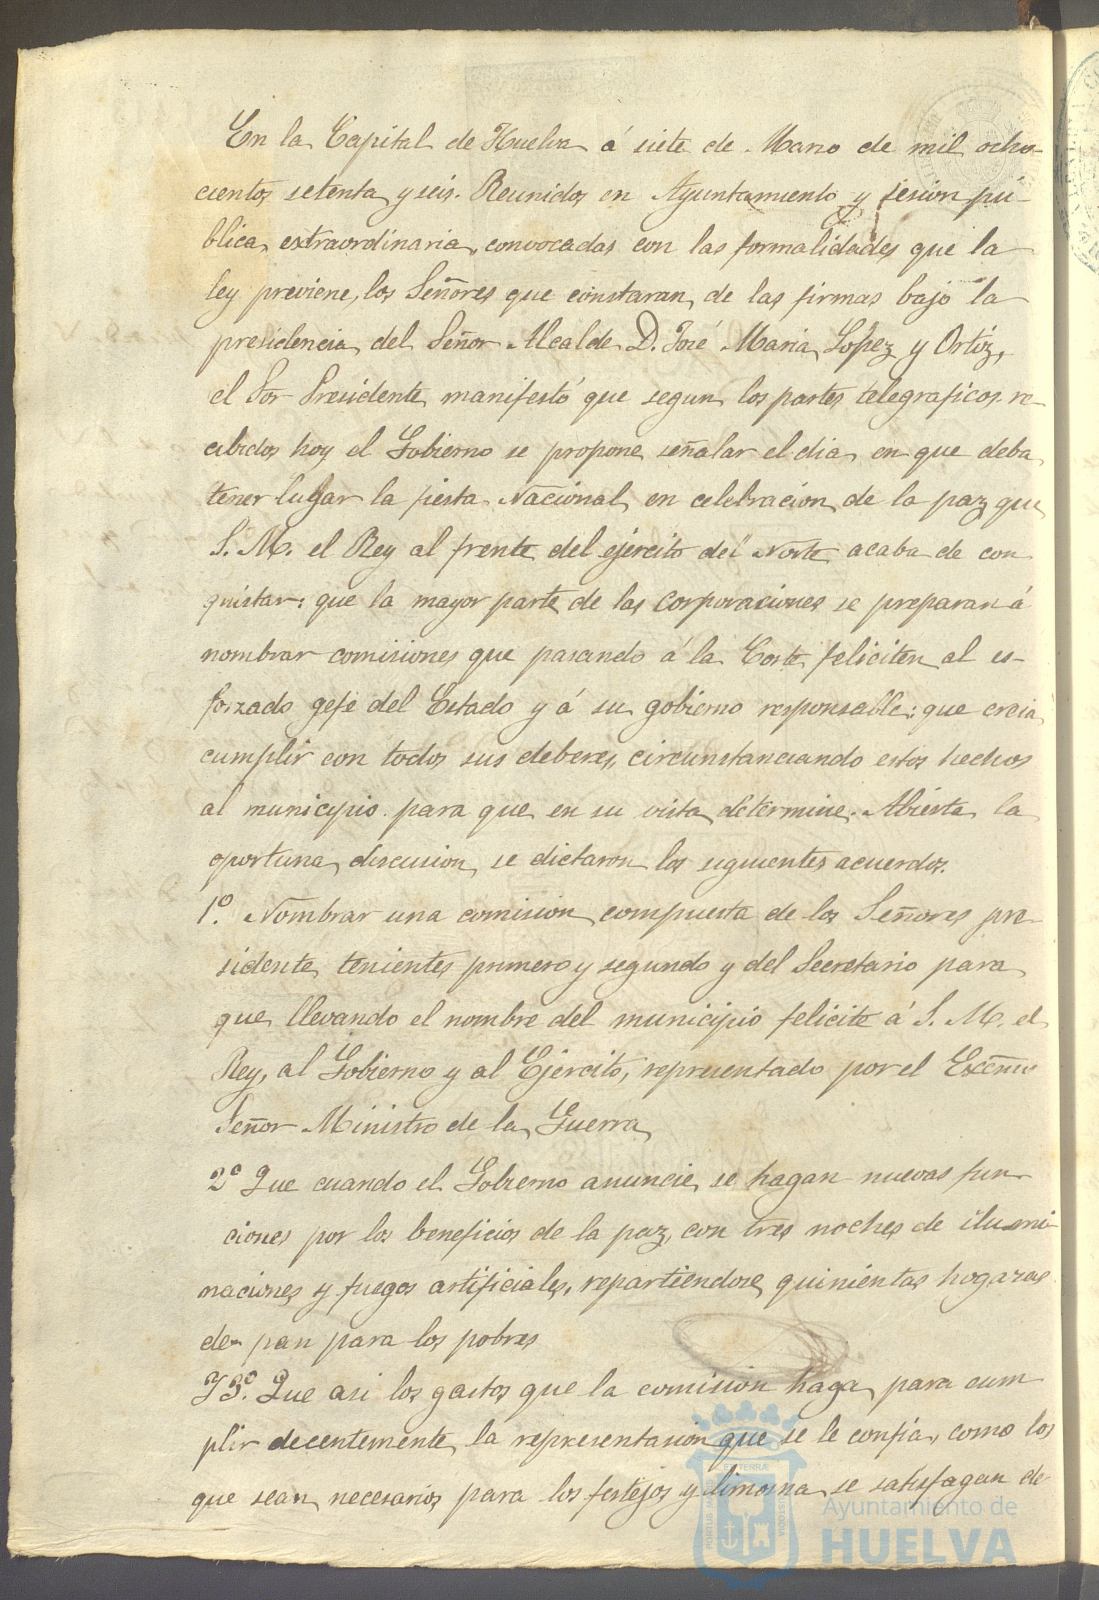 En la Capital de Huelva á siete de Marzo de mil ocho-
cientos setenta y seis. Reunidos en Ayuntamiento y sesion pú-
blica extraordinaria, convocadas con las formalidades que la
ley previene, los Señores que constaran de las firmas bajo la
presidencia del Señor Alcalde D. José Maria Lopez y Ortíz,
el Sor Presidente manifestó que segun los partes telegraficos re-
cibidos hoy el Gobierno se propone señalar el dia en que deba
tener lugar la fiesta Nacional en celebracion de la paz que
S. M. el Rey al frente del ejercito del Norte acaba de con
quistar: que la mayor parte de las Corporaciones se preparan á
nombrar comisiones que pasando á la Corte feliciten al es-
forzado gefe del Estado y á su gobierno responsable: que creia
cumplir con todos sus deberes, circunstanciando estos hechos
al municipio para que en su vista determine. Abierta la
oportuna discusion se dictaron los siguientes acuerdos.
1º. Nombrar una comision compuesta de los Señores pre-
sidente tenientes primero y segundo y del Secretario para
que llevando el nombre del municipio felicite á S. M. el
Rey, al Gobierno y al Ejercito, representado por el Excmo
Señor Ministro de la Guerra
2º Que cuando el Gobierno anuncie se hagan nuevas fun-
ciones por los beneficios de la paz, con tres noches de ilumi-
naciones y fuegos artificiales, repartiendose quinientas hogazas
de pan para los pobres
Y 3º. Que asi los gastos que la comision haga para cum
plir decentemente la representasion que se le confia, como los
que sean necesarios para los festejos y limosna se satisfagan de
PORTUS MARIS
ET TERRÆ
CUSTODIA
Ayuntamiento de
HUELVA